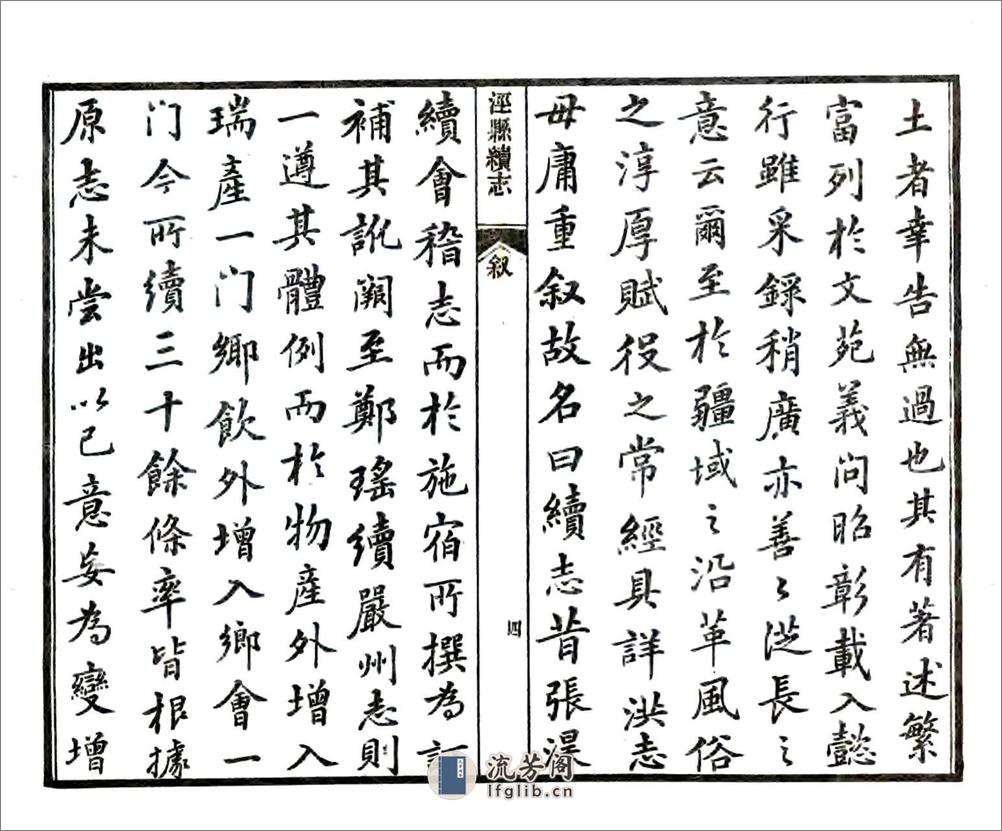 土者幸告無過也其有著述繁
富列於文苑義問昭彰載入懿
行雖采錄稍廣亦善〻從長之
意云爾至於疆域之沿革風俗
之淳厚賦役之常經具詳洪志
毋庸重叙故名曰續志昔張淏
涇縣續志
叙
四
續會稽志而於施宿所撰為訂
補其訛闕至鄭瑤續嚴州志則
一遵其體例而於物產外增入
瑞產一门鄉飲外增入鄉會一
门今所續三十餘條率皆根據
原志未嘗出以己意妄為變增
流芳阁
lfglib.cn